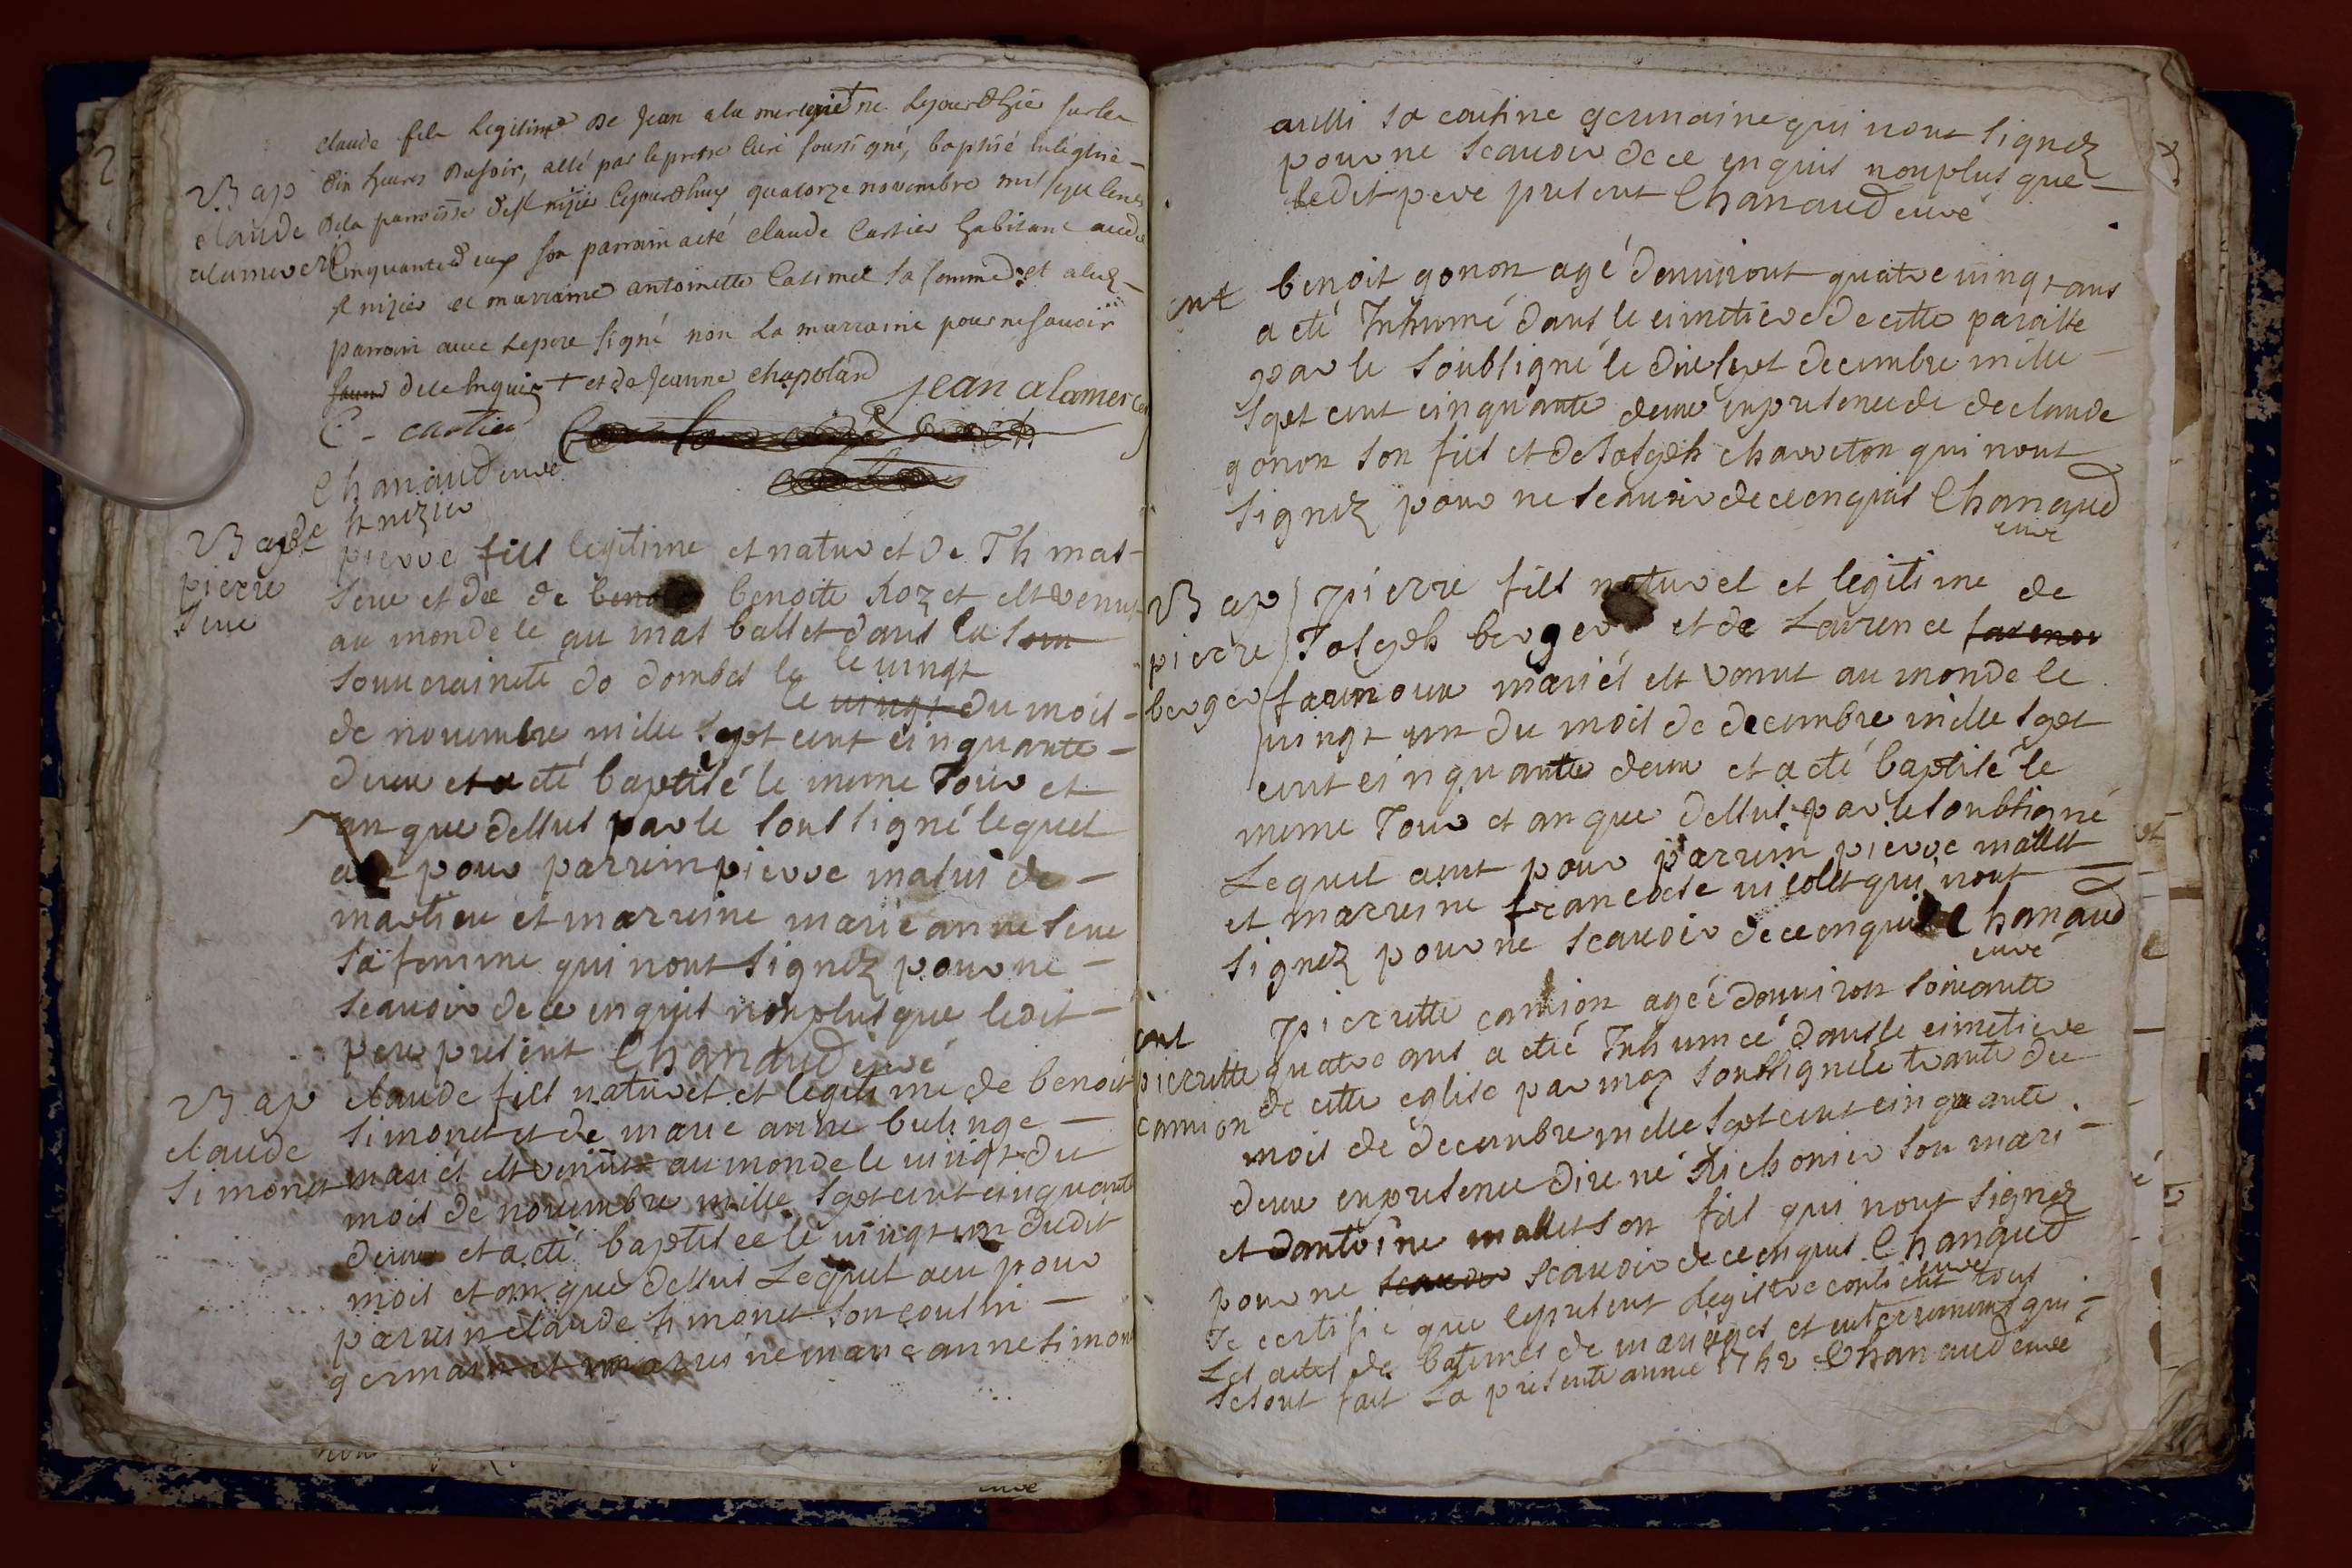 claude fils legitime de Jean alamercerie né le jourdhier sur les
Bap
dix heures du soir, a été par le pretre curé soussigné, baptisé en léglise
claude
de la parroisse de st nizier cejourdhuy quatorze novembre mil sept cens
alamercerie
cinquante deux son parrain a été claude Cartier habitant audit
st nizier et marraine antoinette Catimel sa femme et a led
parrain avec le pere signé non la marraine pour ne savoir
de ce enquis + et de Jeanne chapoland
jean alamercerie
C - cartier
Chanaud curé
de st nizier
Bapt
pierre
seve
pierre fils legitime et naturel de Thmas
seve et de de benoite Rozet est venus
au monde le au mas ballet dans la sou
souveraineté do dombes le le vingt
le vingt du mois
de novembre mille sept cent cinquante
deux et a eté baptisé le meme Jour et
an que dessus par le sous signé lequel
a eu pour parrein pierre matui de
martieu et marreine marie anne seve
sa femme qui nont signez pour ne
scavoir de ce enquis non plus que ledit
pere present Chanaud curé
Bap
claude
simonet
claude fils naturel et legitime de benoit
simonet et de marie anne bulinge
mariés est venus au monde le vingt du
mois de novembre mille sept cent cinquante
deux et a eté baptisée le vingt un dudit
mois et an que dessus Lequel a eu pour
parrein claude simonet son cousin
germain et marreine marie anne simonet
aussi sa cousine germaine qui nont signez
pour ne scavoir de ce enquis nonplus que
ledit pere present Chanaud curé
ent
benoit gonon agé denviront quatre vingt ans
a eté Inhumé dans le cimetiere de cette paroisse
par le soubsigné le dix sept decembre mille
sept cent cinquante deux en presence de de claude
gonon son fils et de Joseph charreton qui nont
signez pour ne scavoir de ce enquis Chanaud
curé
Bap
pierre
berger
pierre fils naturel et legitime de
Joseph berger et de Laurence
farinoux mariés est venut au monde le
vingt un du mois de decembre mille sept
cent cinquante deux et a eté baptisé le
meme Jour et an que dessus par le soubsigné
Lequel a eut pour parrein pierre mallet
et marreine francoise violet qui nont
signez pour ne scavoir de ce enquis Chanaud
curé
ent
pierrette
camion
pierrette camion ageé denviron soixante
quatre ans a eteé Inhumeé dans le cimetiere
de cette eglise par moy soussigné le trante du
mois de decembre mille sept cent cinquante
deux en presence direné Richonier son mari
et dantoine mallet son fils qui nont signez
pour ne scavoir scavoir de ce enquis Chanaud
curé
Je certifie que le present Registre contient tous
Les actes de batemes de mariages et enterrements qui
se sont fait La presente année 1752 Chanaud curé